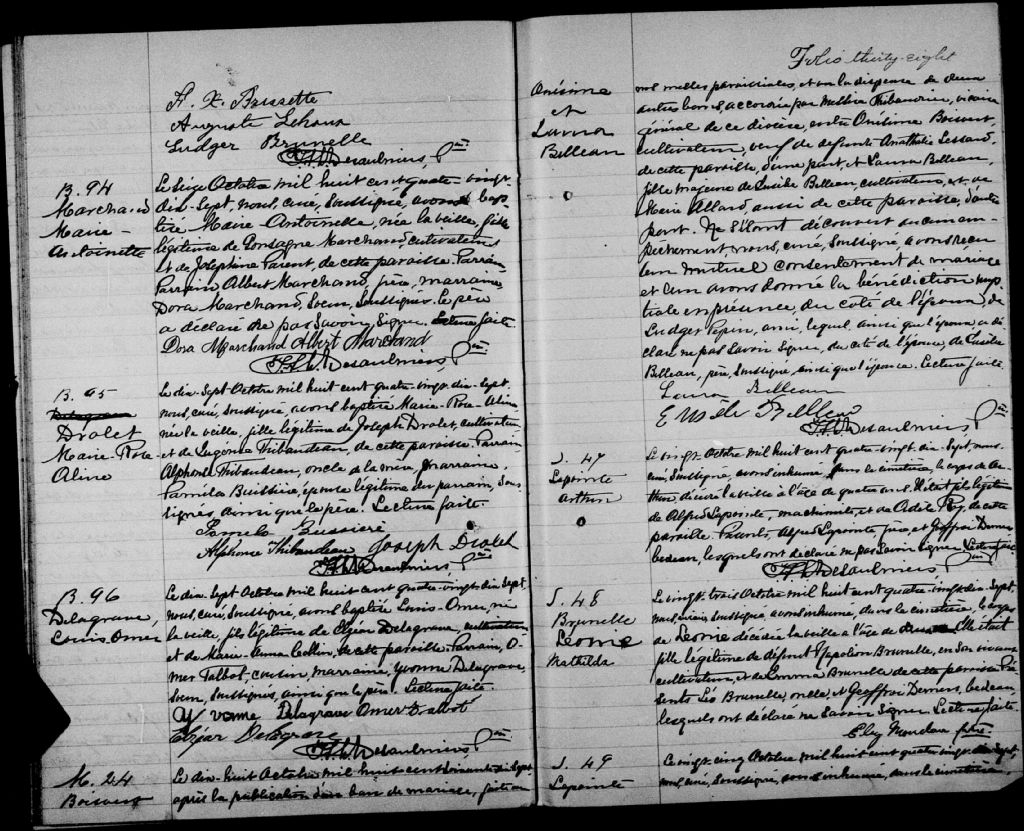 F. X. Brissette
Auguste Leheux
Ludger Brunelle
F.L. Desaulniers, Ptre
B. 94
Marchand
Marie-
Antoinette
Le seize Octobre mil huit cent quatre-vingt-
dix-sept, nous, curé, soussigné, avons bap-
tisé Marie Antoinette, née la veille, fille
légitime de Marchand, cultivateur
et de Joséphine Parent, de cette paroisse. Parrain
Parrain Albert Marchand, frère, marraine
Dora Marchand, soeur, soussignés. Le père
a déclaré ne pas savoir signer. Lecture faite.
Dora Marchand Albert Marchand
Desaulniers, Ptre
B. 95
Delagrave
Drolet
Marie-Rose
Aline
Le dix-sept Octobre mil huit cent quatre-vingt-dix-sept,
nous, curé, soussigné, avons baptisé Marie-Rose-Aline
née la veille, fille légitime de Joseph Drolet, cultivateur
et de Thibaudeau, de cette paroisse. Parrain
Alphonse Thibaudeau, oncle de la marraine,
Parmila Buissière, épouse légitime du parrain, sous-
signés, ainsi que le père. Lecture faite.
Parmila Bussiere
Alphonse Thibaudeau Joseph Drolet
Desaulniers Ptre
B. 96
Delagrave,
Louis Omer
Le dix-sept Octobre mil huit cent quatre-vingt-dix-sept,
nous, curé, soussigné, avons baptisé Louis-Omer, né
la veille, fils légitime de Elzéar Delagrave, cultivateur
et de Marie-Anna de cette paroisse. Parrain, O-
mer Talbot, cousin, marraine, Yvonne Delagrave,
soeur, soussignés, ainsi que le père. Lecture faite.
Yvonne Delagrave Omer Talbot
Elzéar Delagrave
Desaulniers, Ptre
M. 24
Boisvert
Le dix-huit Octobre mil huit cent dix-sept
après la publication d'un ban de mariage, faite au
Folio thirty-eight
Onisime
et
Laura
Billeau
nos messes paroissiales, et vu la dispense de deux
autres bans, accordée par Messire Thibaudier, vicaire
général de ce diocèse, entre Onisime Boisvert,
cultivateur, veuf de défunte Anathalie Lessard,
de cette paroisse, d'une part, et Laura Billeau,
fille majeure de Billeau, cultivateur, et de
Marie Allard, aussi de cette paroisse, d'autre
part. Ne s'étant découvert aucun em-
pêchement, nous, curé, soussigné, avons reçu
leur mutuel consentement de mariage
et leur avons donné la bénédiction nup-
tiale en présence, du côté de l'époux, de
Ludger Pepin, ami, lequel, ainsi que l'époux a dé-
claré ne pas savoir signer, du côté de l'épouse, de
Billeau, père, soussigné, ainsi que l'épouse. Lecture faite.
Laura Billeau
Billeau
Desaulniers Ptre
S. 47
Lapointe
Arthur
Le vingt Octobre mil huit cent quatre-vingt-dix-sept, nous
curé, soussigné, avons inhumé, dans le cimetière, le corps de Ar-
thur, décédé la veille à l'âge de quatre ans. Il était fils légitime
de Alfred Lapointe, machiniste, et de Odile Roy, de cette
paroisse. Présents, Alfred Lapointe, père, et Geffroi Demers,
bedeau, lesquels ont déclaré ne pas savoir signer. Lecture faite
Desaulniers Ptre
S. 48
Brunelle
Leonie
Mathilda
Le vingt-trois Octobre mil huit cent quatre-vingt-dix-sept,
nous, soussigné, avons inhumé, dans le cimetière, le corps
de Leonie décédée la veille à l'âge de Elle était
fille légitime de défunt Napoléon Brunelle, en son vivant
cultivateur, et de Emma Brunelle de cette paroisse. Pré-
sents Léo Brunelle, oncle, et Geoffroi Demers, bedeau,
lesquels ont déclaré ne savoir signer. Lecture faite.
Ptre
S. 49
Lapointe
Le vingt-cinq Octobre mil huit cent quatre-vingt-dix-sept,
nous, curé, soussigné, avons inhumé, dans le cimetière,